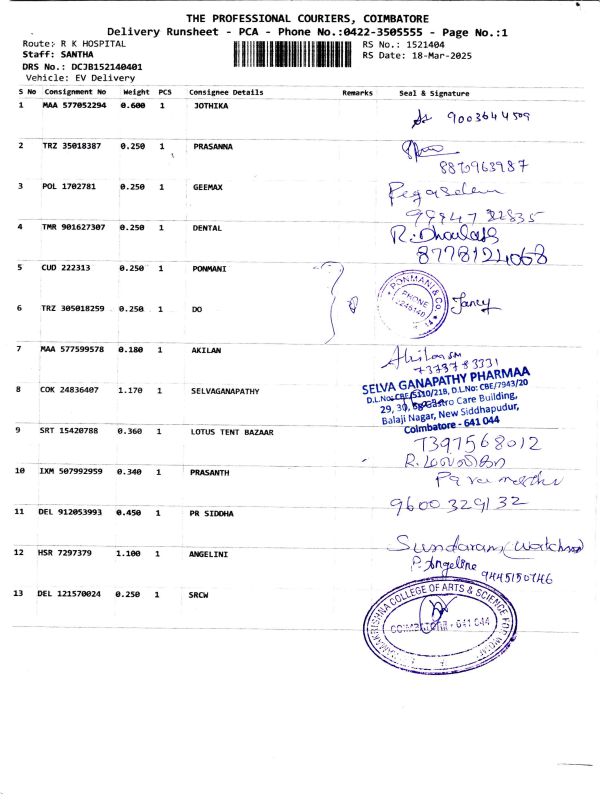 THE PROFESSIONAL COURIERS, COIMBATORE
Delivery Runsheet - PCA - Phone No.:0422-3505555 - Page No.:1
Route: R K HOSPITAL RS No.: 1521404
Staff: SANTHA RS Date: 18-Mar-2025
DRS No.: DCJB152140401
Vehicle: EV Delivery
S No Consignment No Weight PCS Consignee Details Remarks Seal & Signature
1 MAA 577052294 0.600 1 JOTHIKA 9003644509
2 TRZ 35018387 0.250 1 PRASANNA
8870963987
3 POL 1702781 0.250 1 GEEMAX
4 TMR 901627307 0.250 1 DENTAL
8778124068
5 CUD 222313 0.250 1 PONMANI PONMANI & Co
PHONE
6 TRZ 305018259 0.250 1 DO Jancy
7 MAA 577599578 0.180 1 AKILAN Akilan
7373783331
8 COK 24836407 1.170 1 SELVAGANAPATHY SELVA GANAPATHY PHARMAA
D.L.No: CBE/5110/21B, D.L.No: CBE/7943/20
29, 30, Gastro Care Building,
Balaji Nagar, New Siddhapudur,
Coimbatore - 641 044
9 SRT 15420788 0.360 1 LOTUS TENT BAZAAR 7397568012
10 IXM 507992959 0.340 1 PRASANTH
9600329132
11 DEL 912053993 0.450 1 PR SIDDHA
12 HSR 7297379 1.100 1 ANGELINI Sundaram (watchman
P. Angeline
9445150746
13 DEL 121570024 0.250 1 SRCW RAMAKRISHNA COLLEGE OF ARTS & SCIENCE FOR WOMEN
COIMBATORE - 641 044